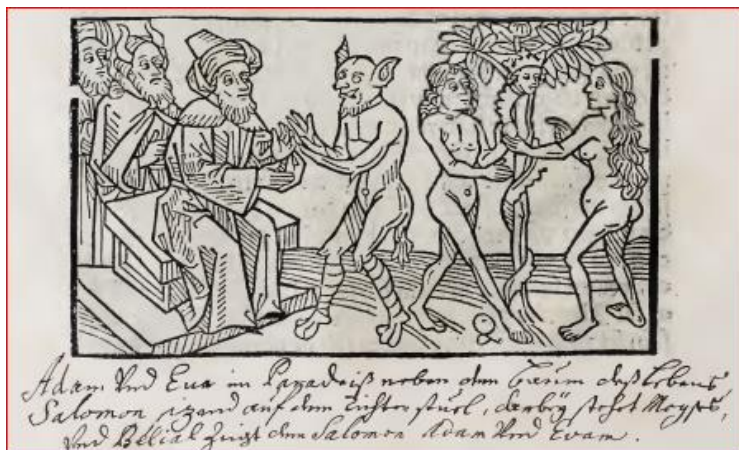 Adam Vnd Eua im Paradeiß neben dem Baum deß Lebens,
Salomon sizend auf dem Richterstuel, darbeÿ stehet Moyses,
Vnd Belial zeigt dem Salomon Adam Vnd Evam.